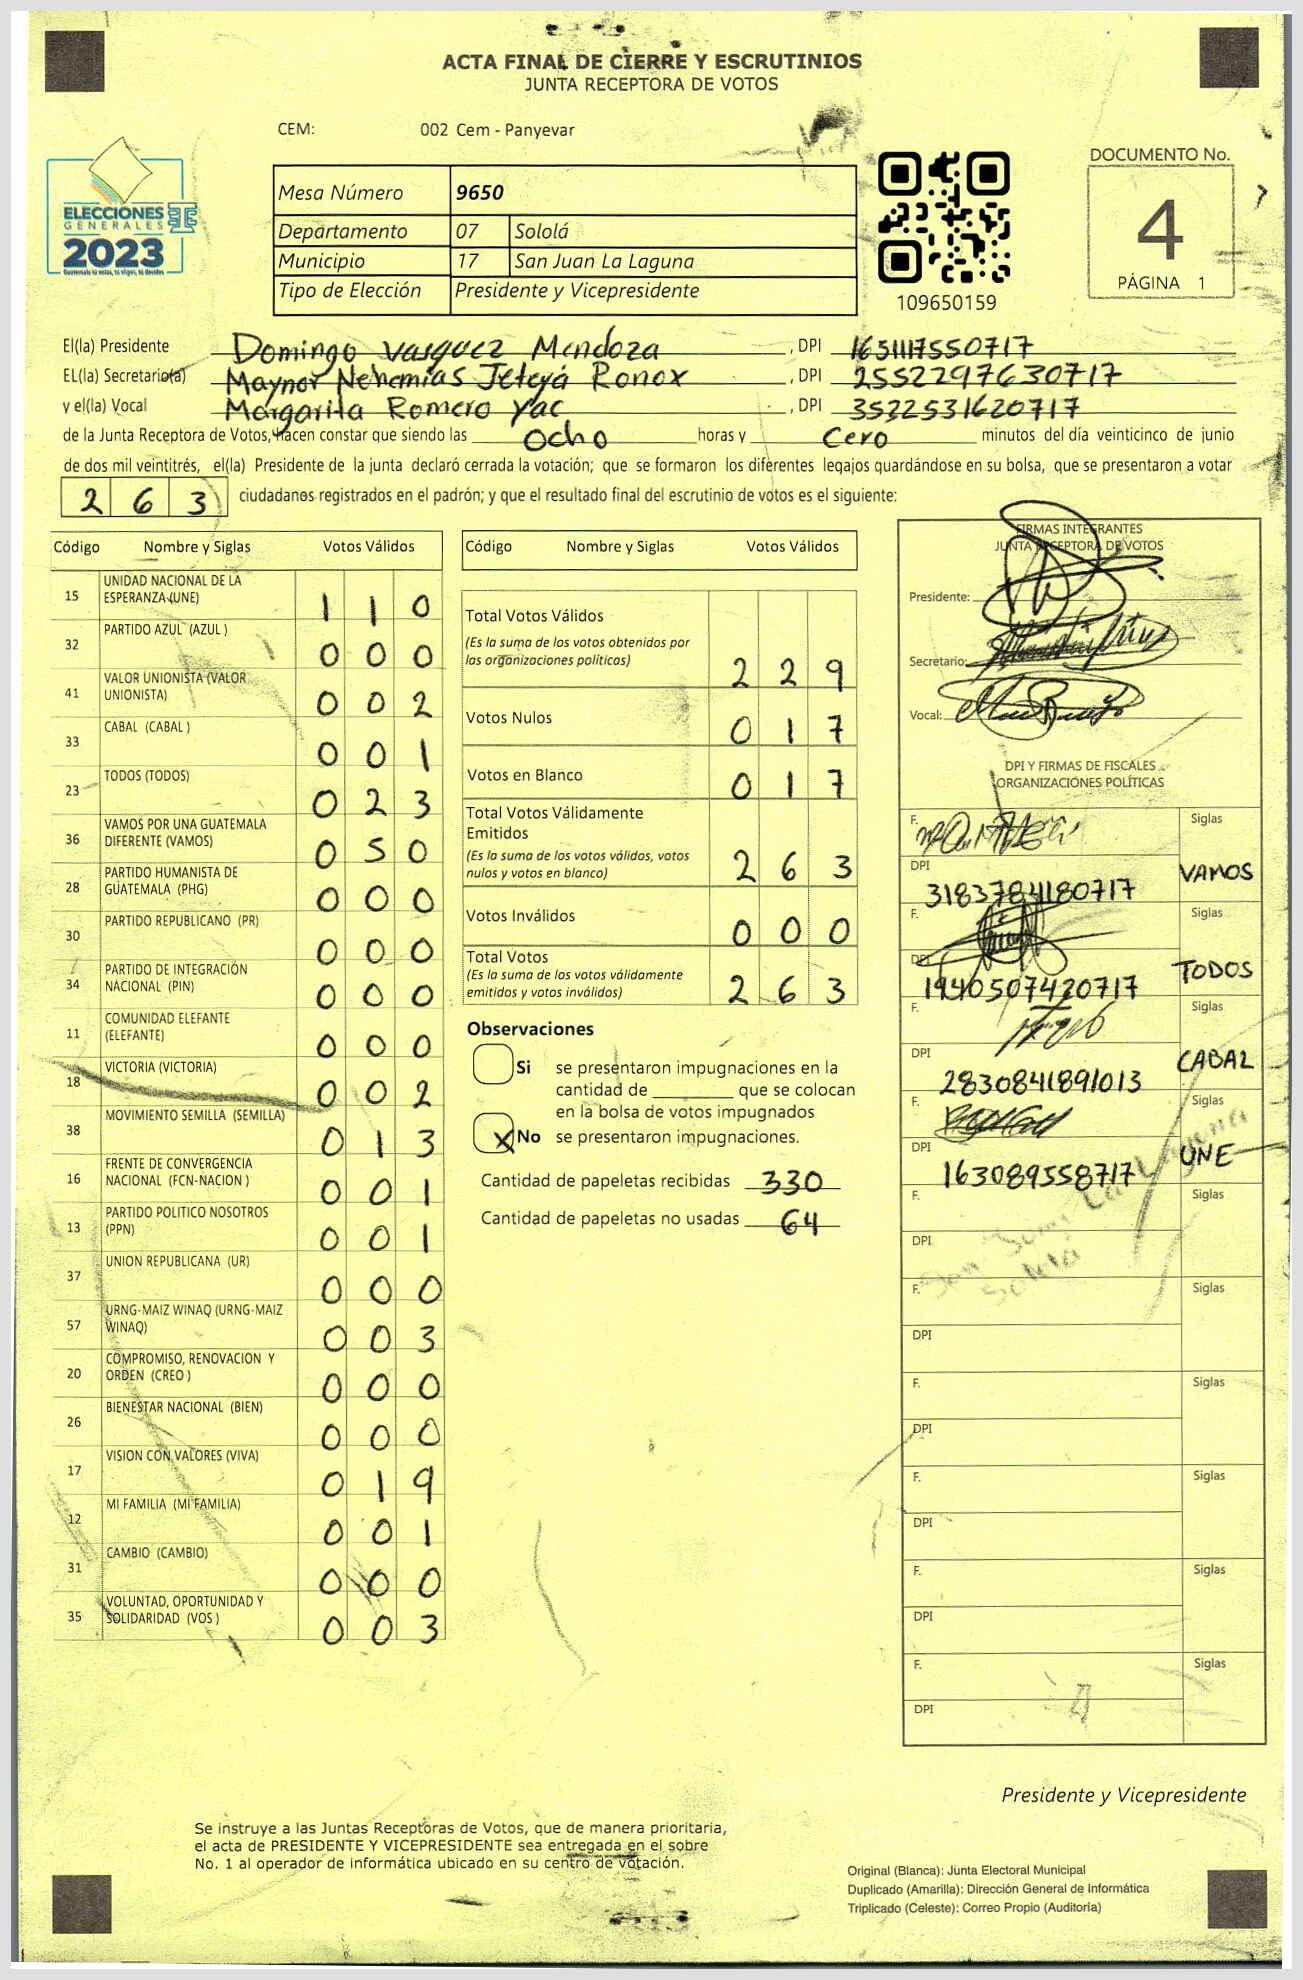 ACTA FINAL DE CIERRE Y ESCRUTINIOS
JUNTA RECEPTORA DE VOTOS
CEM: 002 Cem - Panyevar
ELECCIONES
GENERALES
2023
Guatemala tú votas, tú eliges, tú decides
Mesa Número 9650
Departamento 07 Sololá
Municipio 17 San Juan La Laguna
Tipo de Elección Presidente y Vicepresidente
109650159
DOCUMENTO No.
4
PÁGINA 1
El(la) Presidente Domingo Vasquez Mendoza , DPI 1651117550717
EL(la) Secretario(a) Maynor Nehemías , DPI 2552297630717
y el(la) Vocal Margarita Romero Yac , DPI 3532531620717
de la Junta Receptora de Votos, hacen constar que siendo las Ocho horas y Cero minutos del día veinticinco de junio
de dos mil veintitrés, el(la) Presidente de la junta declaró cerrada la votación; que se formaron los diferentes legajos quardándose en su bolsa, que se presentaron a votar
2 6 3 ciudadanos registrados en el padrón; y que el resultado final del escrutinio de votos es el siguiente:
Código Nombre y Siglas Votos Válidos
15 UNIDAD NACIONAL DE LA
ESPERANZA (UNE) 1 1 0
32 PARTIDO AZUL (AZUL ) 0 0 0
41 VALOR UNIONISTA (VALOR
UNIONISTA) 0 0 2
33 CABAL (CABAL ) 0 0 1
23 TODOS (TODOS) 0 2 3
36 VAMOS POR UNA GUATEMALA
DIFERENTE (VAMOS) 0 5 0
28 PARTIDO HUMANISTA DE
GUATEMALA (PHG) 0 0 0
30 PARTIDO REPUBLICANO (PR) 0 0 0
34 PARTIDO DE INTEGRACIÓN
NACIONAL (PIN) 0 0 0
11 COMUNIDAD ELEFANTE
(ELEFANTE) 0 0 0
18 VICTORIA (VICTORIA) 0 0 2
38 MOVIMIENTO SEMILLA (SEMILLA) 0 1 3
16 FRENTE DE CONVERGENCIA
NACIONAL (FCN-NACION ) 0 0 1
13 PARTIDO POLITICO NOSOTROS
(PPN) 0 0 1
37 UNION REPUBLICANA (UR) 0 0 0
57 URNG-MAIZ WINAQ (URNG-MAIZ
WINAQ) 0 0 3
20 COMPROMISO, RENOVACION Y
ORDEN (CREO ) 0 0 0
26 BIENESTAR NACIONAL (BIEN) 0 0 0
17 VISION CON VALORES (VIVA) 0 1 9
12 MI FAMILIA (MI FAMILIA) 0 0 1
31 CAMBIO (CAMBIO) 0 0 0
35 VOLUNTAD, OPORTUNIDAD Y
SOLIDARIDAD (VOS ) 0 0 3
Código Nombre y Siglas Votos Válidos
Total Votos Válidos
(Es la suma de los votos obtenidos por
las organizaciones políticas) 2 2 9
Votos Nulos 0 1 7
Votos en Blanco 0 1 7
Total Votos Válidamente
Emitidos
(Es la suma de los votos válidos, votos
nulos y votos en blanco) 2 6 3
Votos Inválidos 0 0 0
Total Votos
(Es la suma de los votos válidamente
emitidos y votos inválidos) 2 6 3
Observaciones
Si se presentaron impugnaciones en la
cantidad de que se colocan
en la bolsa de votos impugnados
X No se presentaron impugnaciones.
Cantidad de papeletas recibidas 330
Cantidad de papeletas no usadas 64
FIRMAS INTEGRANTES
JUNTA RECEPTORA DE VOTOS
Presidente:
Secretario:
Vocal:
DPI Y FIRMAS DE FISCALES
ORGANIZACIONES POLÍTICAS
F. Siglas
DPI 3183784180717 VAMOS
F. Siglas
DPI 1940507420717 TODOS
F. Siglas
DPI 2830841891013 CABAL
F. Siglas
DPI 163089558717 UNE
F. Siglas
DPI
San Juan La Laguna
Sololá
F. Siglas
DPI
F. Siglas
DPI
F. Siglas
DPI
F. Siglas
DPI
F. Siglas
DPI
Presidente y Vicepresidente
Se instruye a las Juntas Receptoras de Votos, que de manera prioritaria,
el acta de PRESIDENTE Y VICEPRESIDENTE sea entregada en el sobre
No. 1 al operador de informática ubicado en su centro de votación.
Original (Blanca): Junta Electoral Municipal
Duplicado (Amarilla): Dirección General de Informática
Triplicado (Celeste): Correo Propio (Auditoría)